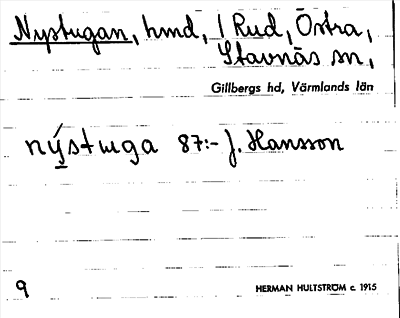 Nystugan, hmd, i Rud, Östra,
Stavnäs sn,
Gillbergs hd, Värmlands län
nýstuga 87:- J. Hansson
9
HERMAN HULTSTRÖM c. 1915